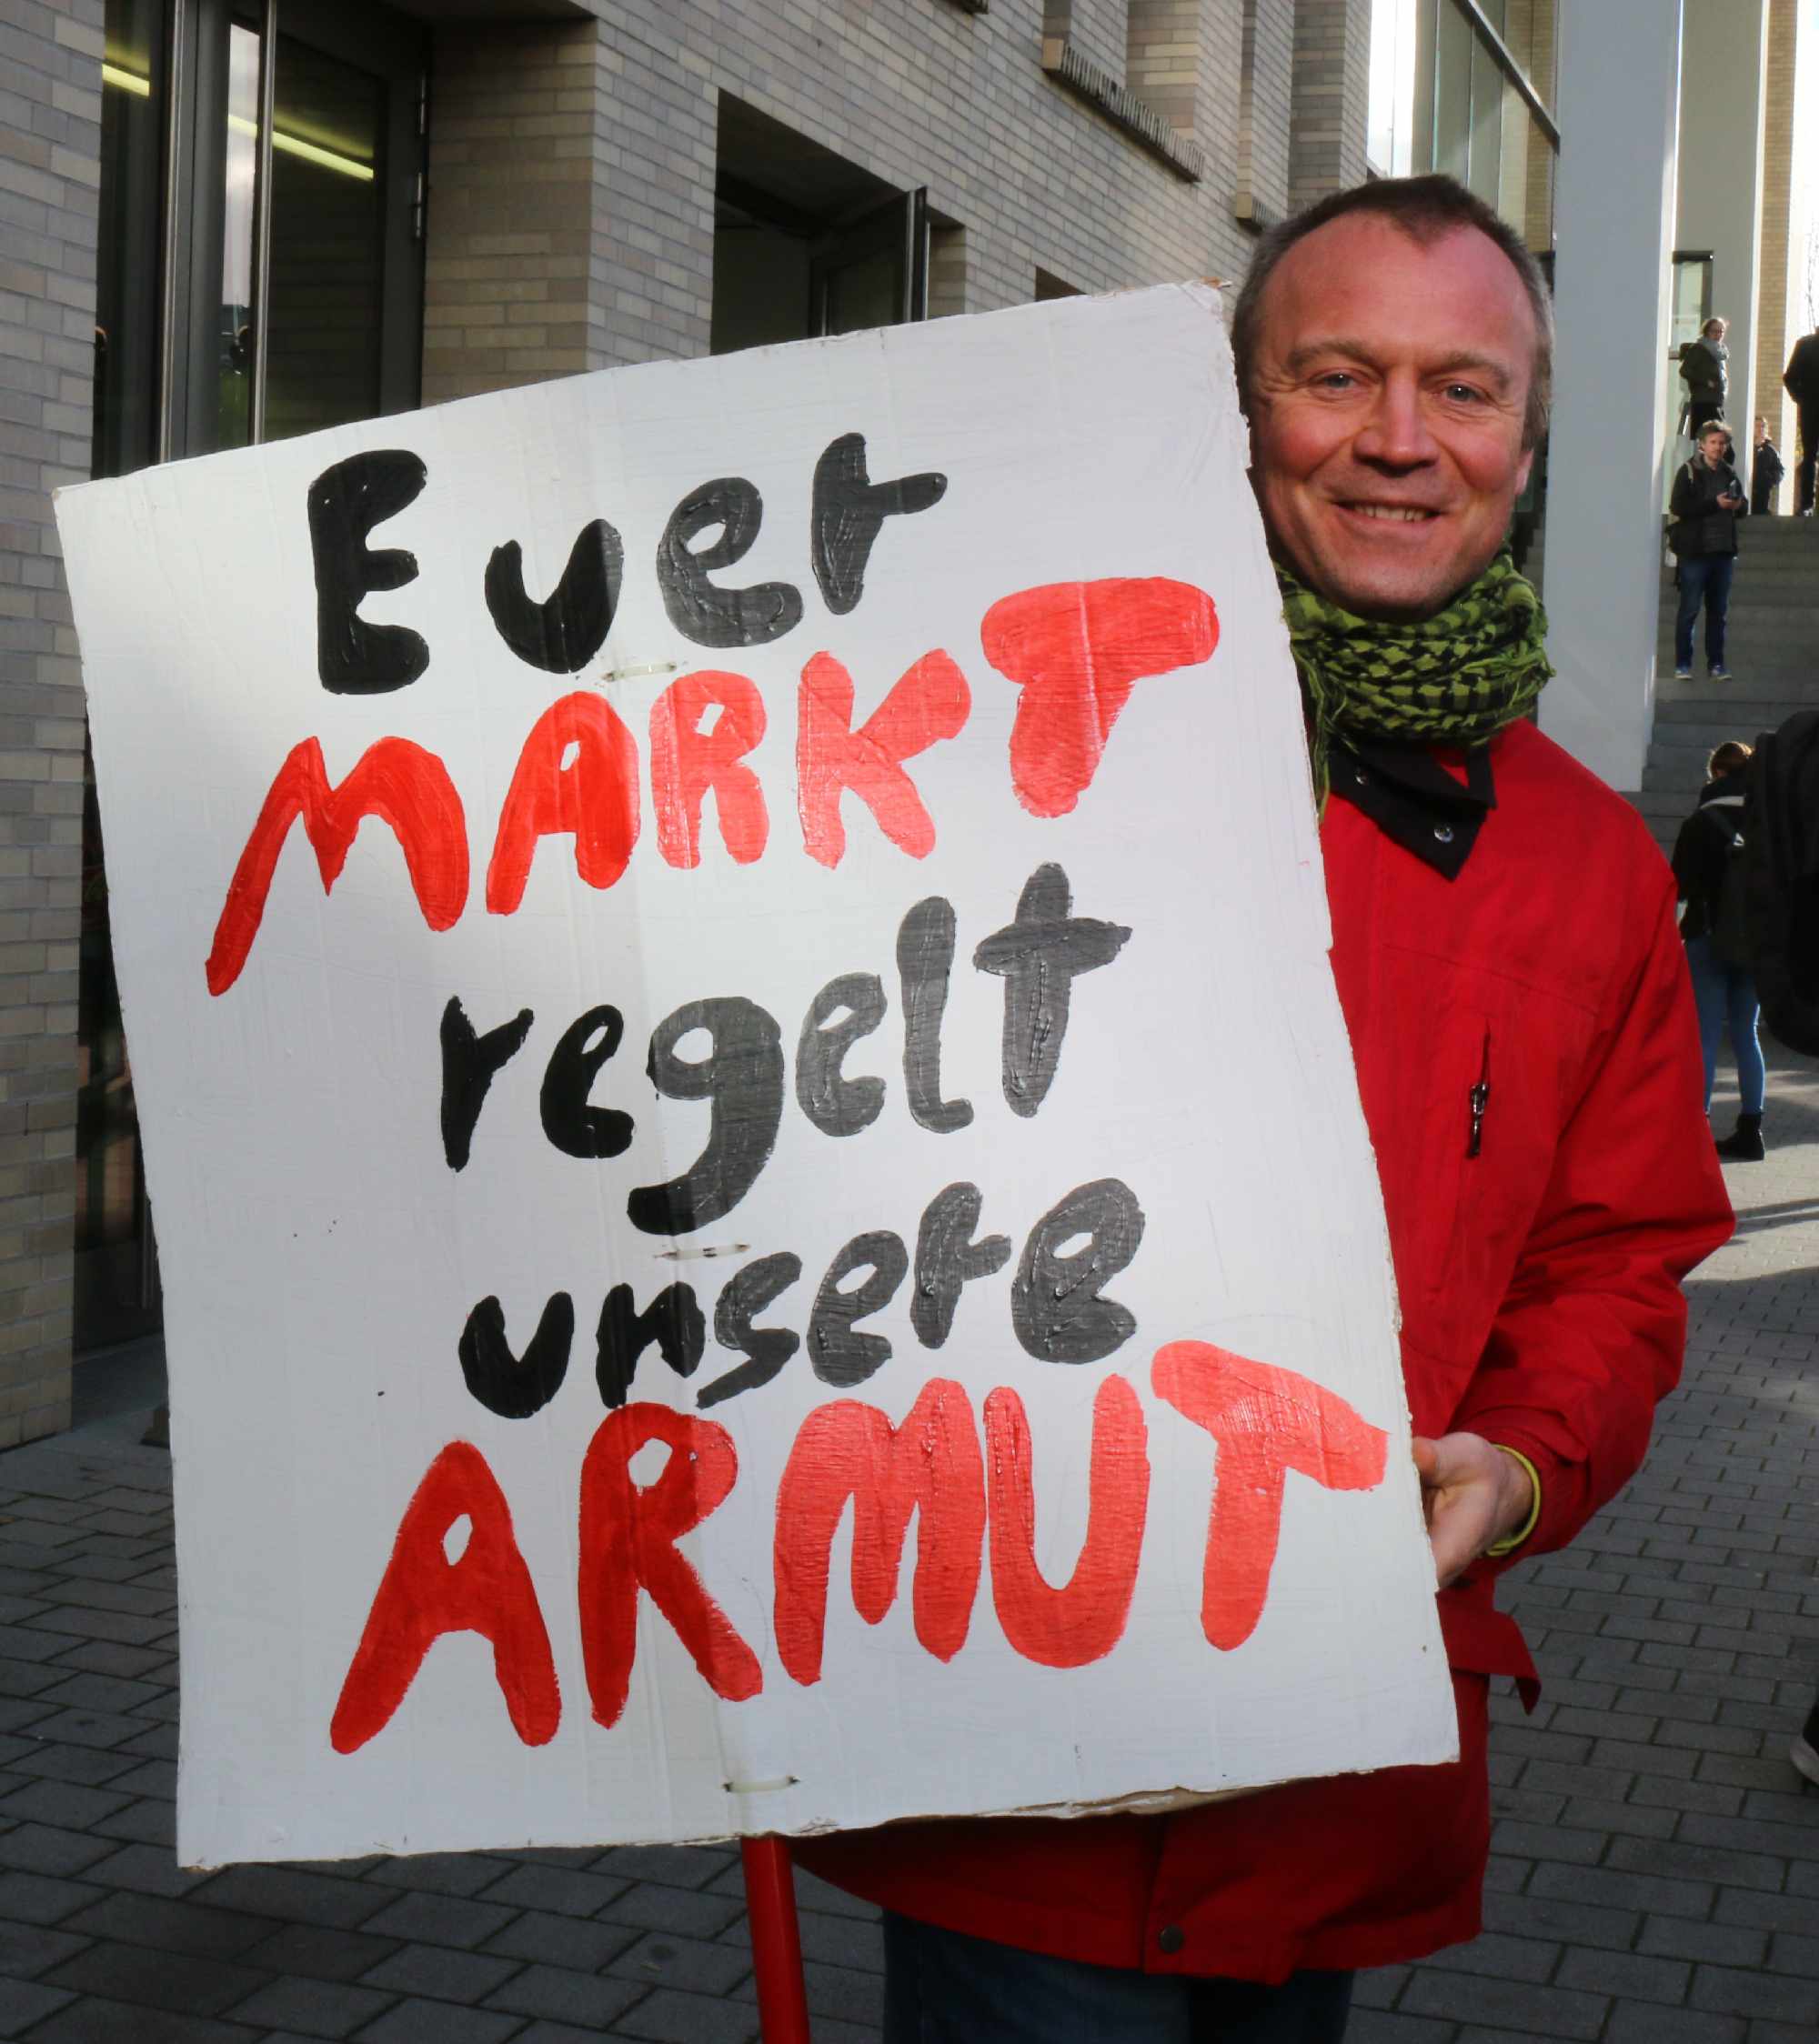 Euer
MARKT
regelt
unsere
ARMUT